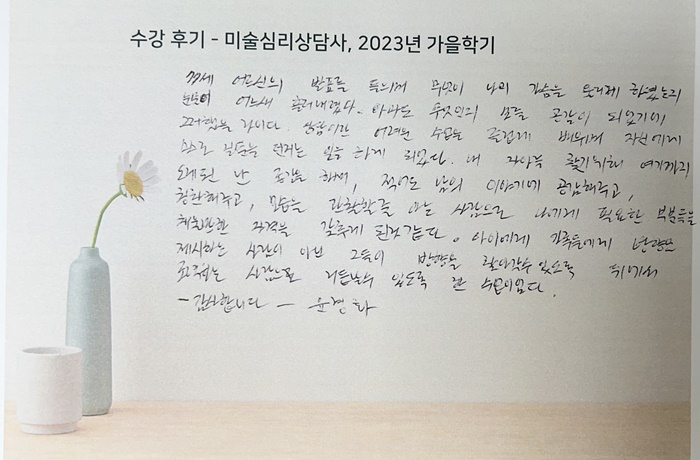 수강 후기 - 미술심리상담사, 2023년 가을학기
77세 어르신의 발표를 들으며 무엇이 나의 가슴을 뜨겁게 하였는지
눈물이 어느새 흘러내렸다. 아마도 무엇인지 모를 공감이 되었기에
그러했을 상담이란 어려운 수업을 즐겁게 배우며 자신에게
스스로 질문을 던지는 일을 하게 되었다. 내 자아를 찾기위해 여기까지
오게된 난 공감을 하며, 적어도 남의 이야기에 공감해주고,
칭찬해주고, 모습을 관찰할줄 아는 사람으로 나에게 필요한 부분들을
체험한 자격을 갖추게 된것 같다. 아이에게 가족들에게 방향만
제시하는 사람이 아닌 그들이 방향을 찾아갈수 있도록 뒤에서
사람으로 거듭날수 있도록 한 수업이었다.
- 감사합니다 -